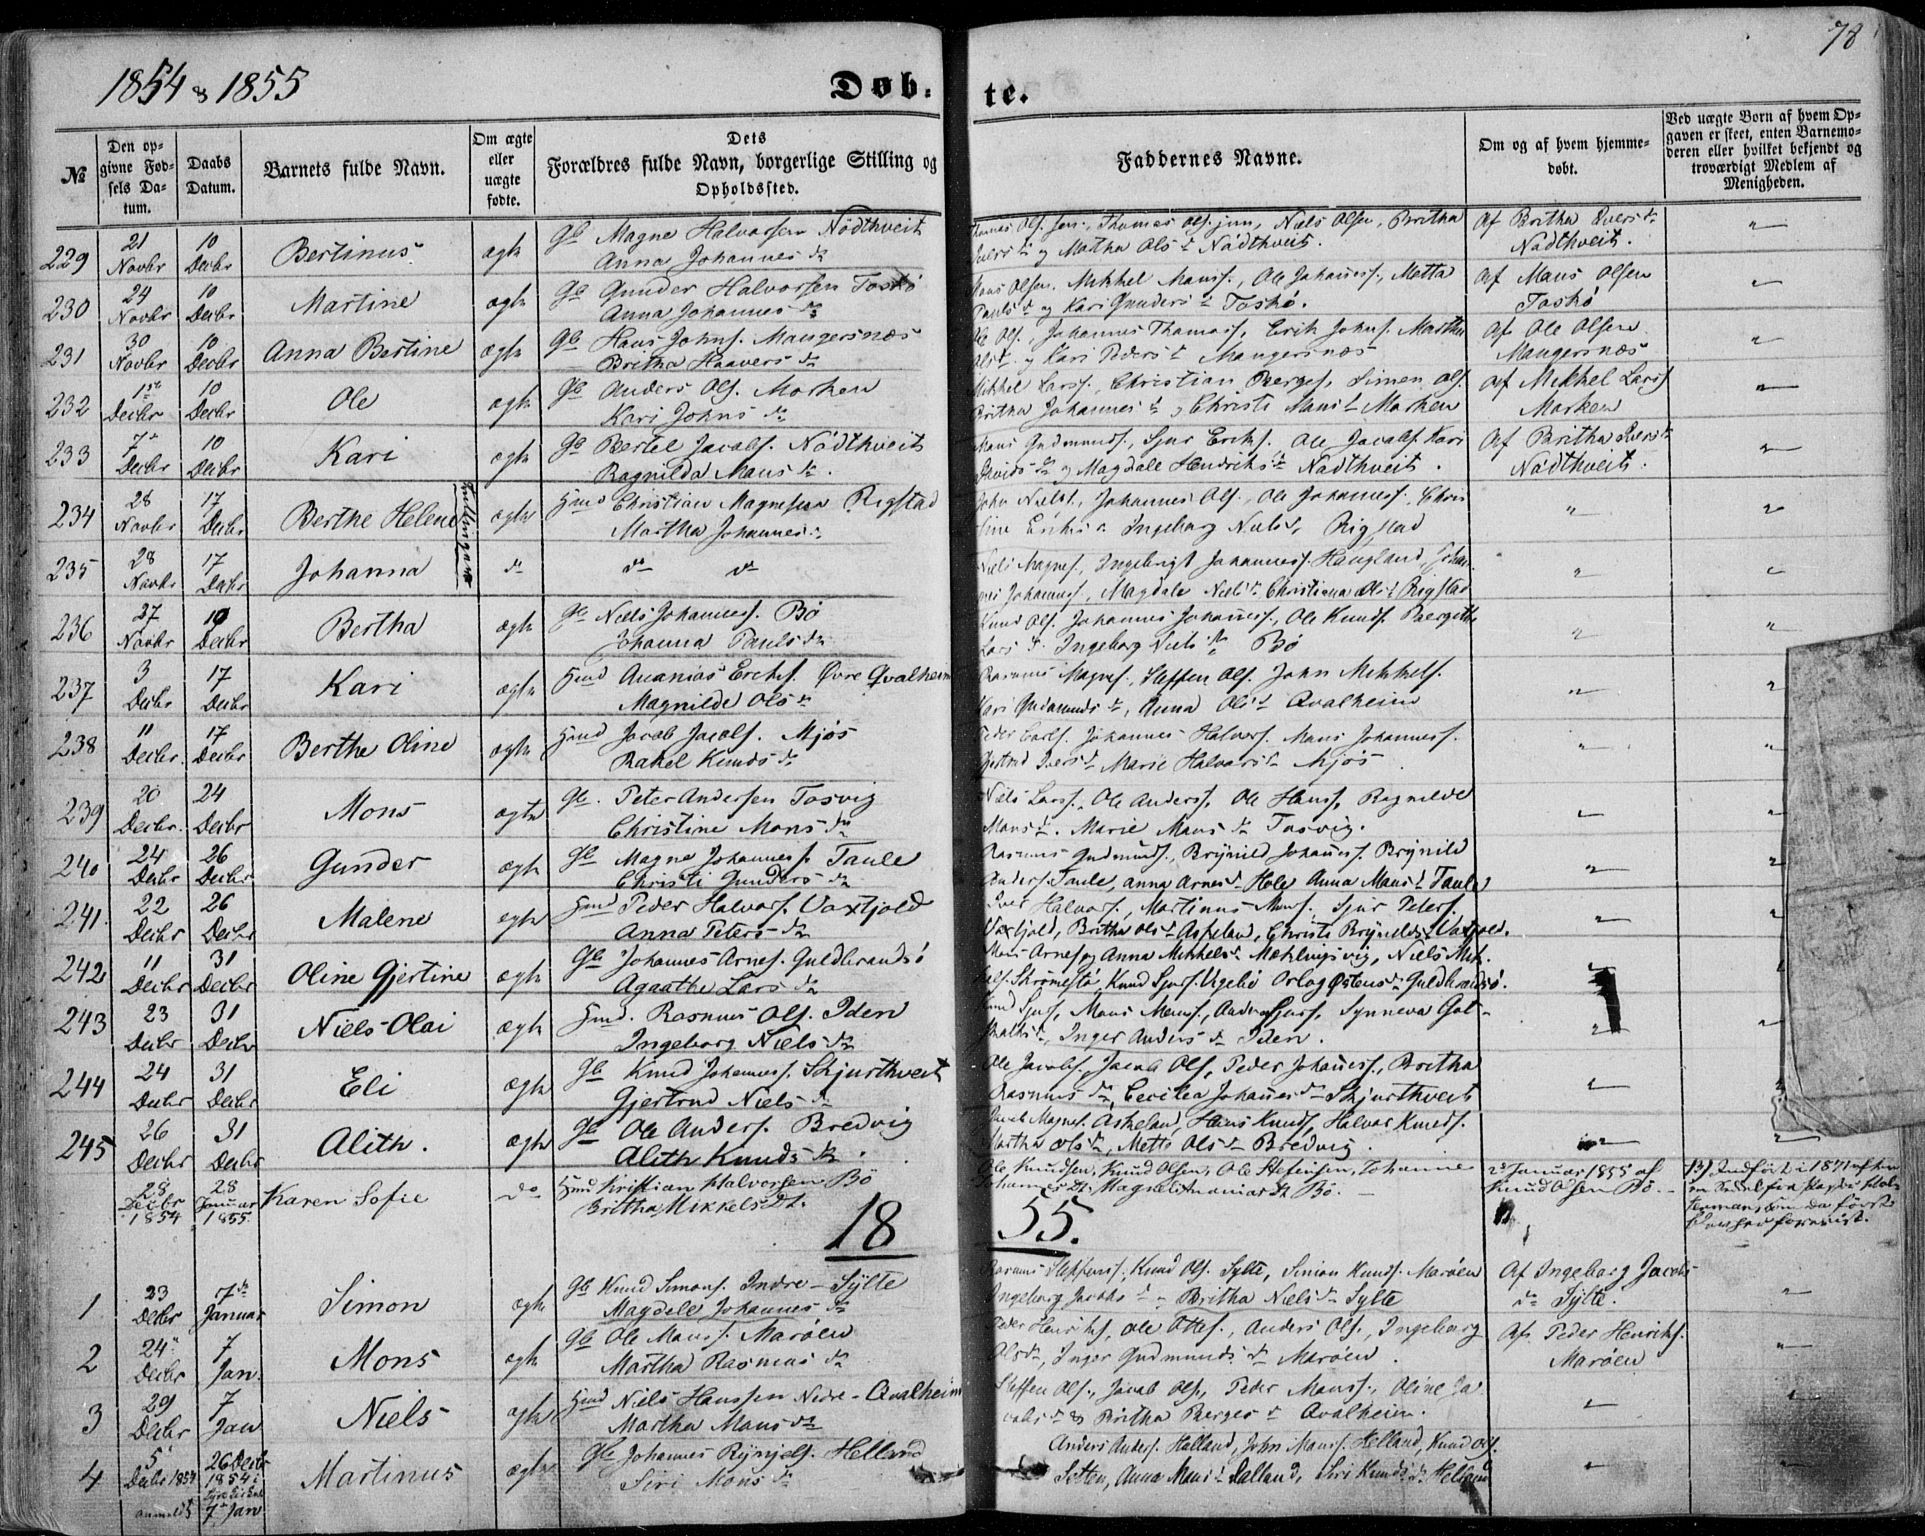 78
1854 & 1855
Døb-
te.
№
Den op-
givne Fød-
sels Da-
tum.
Daabs
Datum.
Barnets fulde Navn.
Om ægte
eller
uægte
fødte.
Dets
Forældres fulde Navn, borgerlige Stilling og
Opholdssted.
Faddernes Navne.
Om og af hvem hjemme-
døbt.
Ved uægte Børn af hvem Op-
gaven er skeet, enten Barnemo-
deren eller hvilket bekjendt og
troværdigt Medlem af
Menigheden.
229 21 Novbr 10 Decbr Bertinus ægte Gb Magne Halvorsen Nödthveit
Anna Johannes dr
Thomas Ols. sen., Thomas Ols. jun, Niels Olsen, Britha
Ivers dr og Martha Ols dr Nödthveit.
Af Britha Ivers dr
Nödthveit.
230 24 Novbr 10 Decbr Martine ægte Gb Gunder Halvorsen Toskö
Anna Johannes dr
Mons Olsen, Mikkel Monss., Ole Johanness., Metta
Pauls dr og Kari Gunders dr Toskö.
af Mons Olsen
Toskö
231 30 Novbr 10 Decbr Anna Bertine ægte Gb Hans Johns. Mangersnæs
Britha Haavers dr
Ole Ols., Johannes Thomass., Erik Johns. Martha
Ols dr og Kari Peders dr Mangersnæs
Af Ole Olsen
Mangersnæs
232 1ste Decbr 10 Decbr Ole ægte Gb Anders Ols. Morken
Kari Johns dr
Mikkel Larss., Christian Berges., Simen Ols.
Britha Johannes dr, Christi Mons dr Morken
af Mikkel Larss
Morken
233 7de Decbr 10 Decbr Kari ægte Gb Bertel Jacobs. Nödthveit
Ragnilda Mons dr.
Mons Gudmunds., Sjur Eriks. Ole Jacobs. Kari
og Magdale Hendriks dr Nödthveit.
Af Britha Ivers dr
Nödthveit.
234 28 Novbr 17 Decbr Berthe Helene ægte Hmd Christian Magnesen Rigstad
Martha Johannes dr
John Niels., Johannes Ols., Ole Johanness., Chris
tine Eriks dr Ingeborg Niels dr Rigstad
Tvillinger
235 28 Novbr 17 Decbr Johanna do do do
Niels Magnes., Ingebrigt Johanness. Haugland, Johan
nes Johanness., Magdale Niels dr Christiana Ols dr Rigstad
236 27 Novbr 10 Decbr Bertha ægte Gb Niels Johanness. Bö
Johanna Pauls dr
Knud Ols. Johannes Johanness., Ole Knuds. Bergitte
Lars dr Ingeborg Niels dr Bö
237 3 Decbr 17 Decbr Kari ægte Hmd Ananias Ericks. Övre Qvalheim
Magnilde Ols dr
Rasmus Magnes., Steffen Ols. John Mikkels.
Kari Gudmunds dr, Anna Ols dr Qvalheim
238 11 Decbr. 17 Decbr Berthe Oline ægte Hmd Jacob Jacobs. Mjös
Rakel Knuds dr
Peder Carls. Johannes Halvors. Mons Johanness.
Gjertrud Ivers dr Marie Halvors dr Mjös
239 20 Decbr. 24 Decbr Mons ægte Gb. Peter Andersen Tosvig
Christine Mons dr
Niels Larss., Ole Anderss., Ole Hanss. Ragnilde
Mons dr. Marie Mons dr Tosvig.
240 24 Decbr 26 Decbr Gunder ægte Gb Magne Johanness. Taule
Christi Gunders dr
Rasmus Gudmunds., Brynild Johanness. Brynild
Anders. Taule, Anna Arnes dr Hole Anna Mons dr Taule
241. 22 Decbr 26 Decbr Malene ægte Hmd Peder Halvors. Vaxtjold
Anna Peters dr
Iver Halvors., Martinus Mons., Sjur Peters.
Vaxtjold, Britha Ols dr Aspeland, Christi Brynilds dr Vaxtjold.
242 11 Decbr 31 Decbr Oline Gjertine ægte Gb Johannes Arnes. Guldbrandsö
Agaathe Lars dr
Mons Arnes og Anna Mikkels dr Mæhlingsvig, Niels Mik
kels. Skromestö, Knud Sjurs. Uglebö Orlog Östens dr Guldbrandsö.
243 23 Decbr 31 Decbr Niels Olai ægte Hmd. Rasmus Ols. Iden
Ingeborg Niels dr
Knud Sjurs., Mons Monss., Anders Sjurs., Synneva Got-
skalks dr, Inger Anders dr Iden.
244 24 Decbr 31 Decbr Eli ægte Gb Knud Johanness. Skjurthveit
Gjertrud Niels dr
Ole Jacobs., Jacob Ols., Peder Johanness., Britha
Rasmus dr, Cecilea Johannes dr Skjurthveit
245 26 Decbr 31 Decbr Alith. ægte Gb Ole Anders. Bredvig
Alith Knuds dr.
Jacob Magnes. Askeland, Hans Knuds., Halvor Knuds.
Martha Ols dr, Mette Ols dr Bredvig
28 Decbr 1854 28 Januar 1855. Karen Sofie do Hmd Kristian Halvorsen Bö
Britha Mikkels Dt.
Ole Knudsen, Knud Olsen, Ole Stefensen, Johanne
Johannes Dt. Magneli Ananias Dt Bö.
2 Januar 1855 af
Knud Olsen Bö.
Indfört i 1871 efter
1855.
1 23 Decbr 7de Januar Simon ægte Gb Knud Simons. Indre-Sylte
Magdele Johannes dr
Rasmus Steffens., Knud Ols. Sylte, Simon Knuds. Maröen
Ingeborg Jacobs dr Britha Niels dr Sylte
Af Ingeborg Jacobs
dr Sylte.
2 24 Decbr 7 Jan. Mons ægte Gb Ole Monss. Maröen
Martha Rasmus dr
Peder Henriks, Ole Ottes., Anders Ols., Ingeborg
Ols dr, Inger Gudmunds dr Maröen.
Af Peder Henriks.
Maröen
3 29 Decbr 7 Jan Niels ægte Hmd Niels Hanssen Nedre-Qvalheim
Martha Mons dr
Steffen Ols., Jacob Ols., Peder Monss., Oline Ja
cobs dr & Britha Berges dr Qvalheim.
4 5 Decbr 1854 anmeldt 26 Decbr 1854 i 7 Jan Martinus ægte Gb Johannes Rynjels. Helland
Siri Mons dr
Anders Anders. Halland, John Monss. Helland, Knud Ols.
Setten, Anna Mons dr Halland, Siri Knuds dr Helland